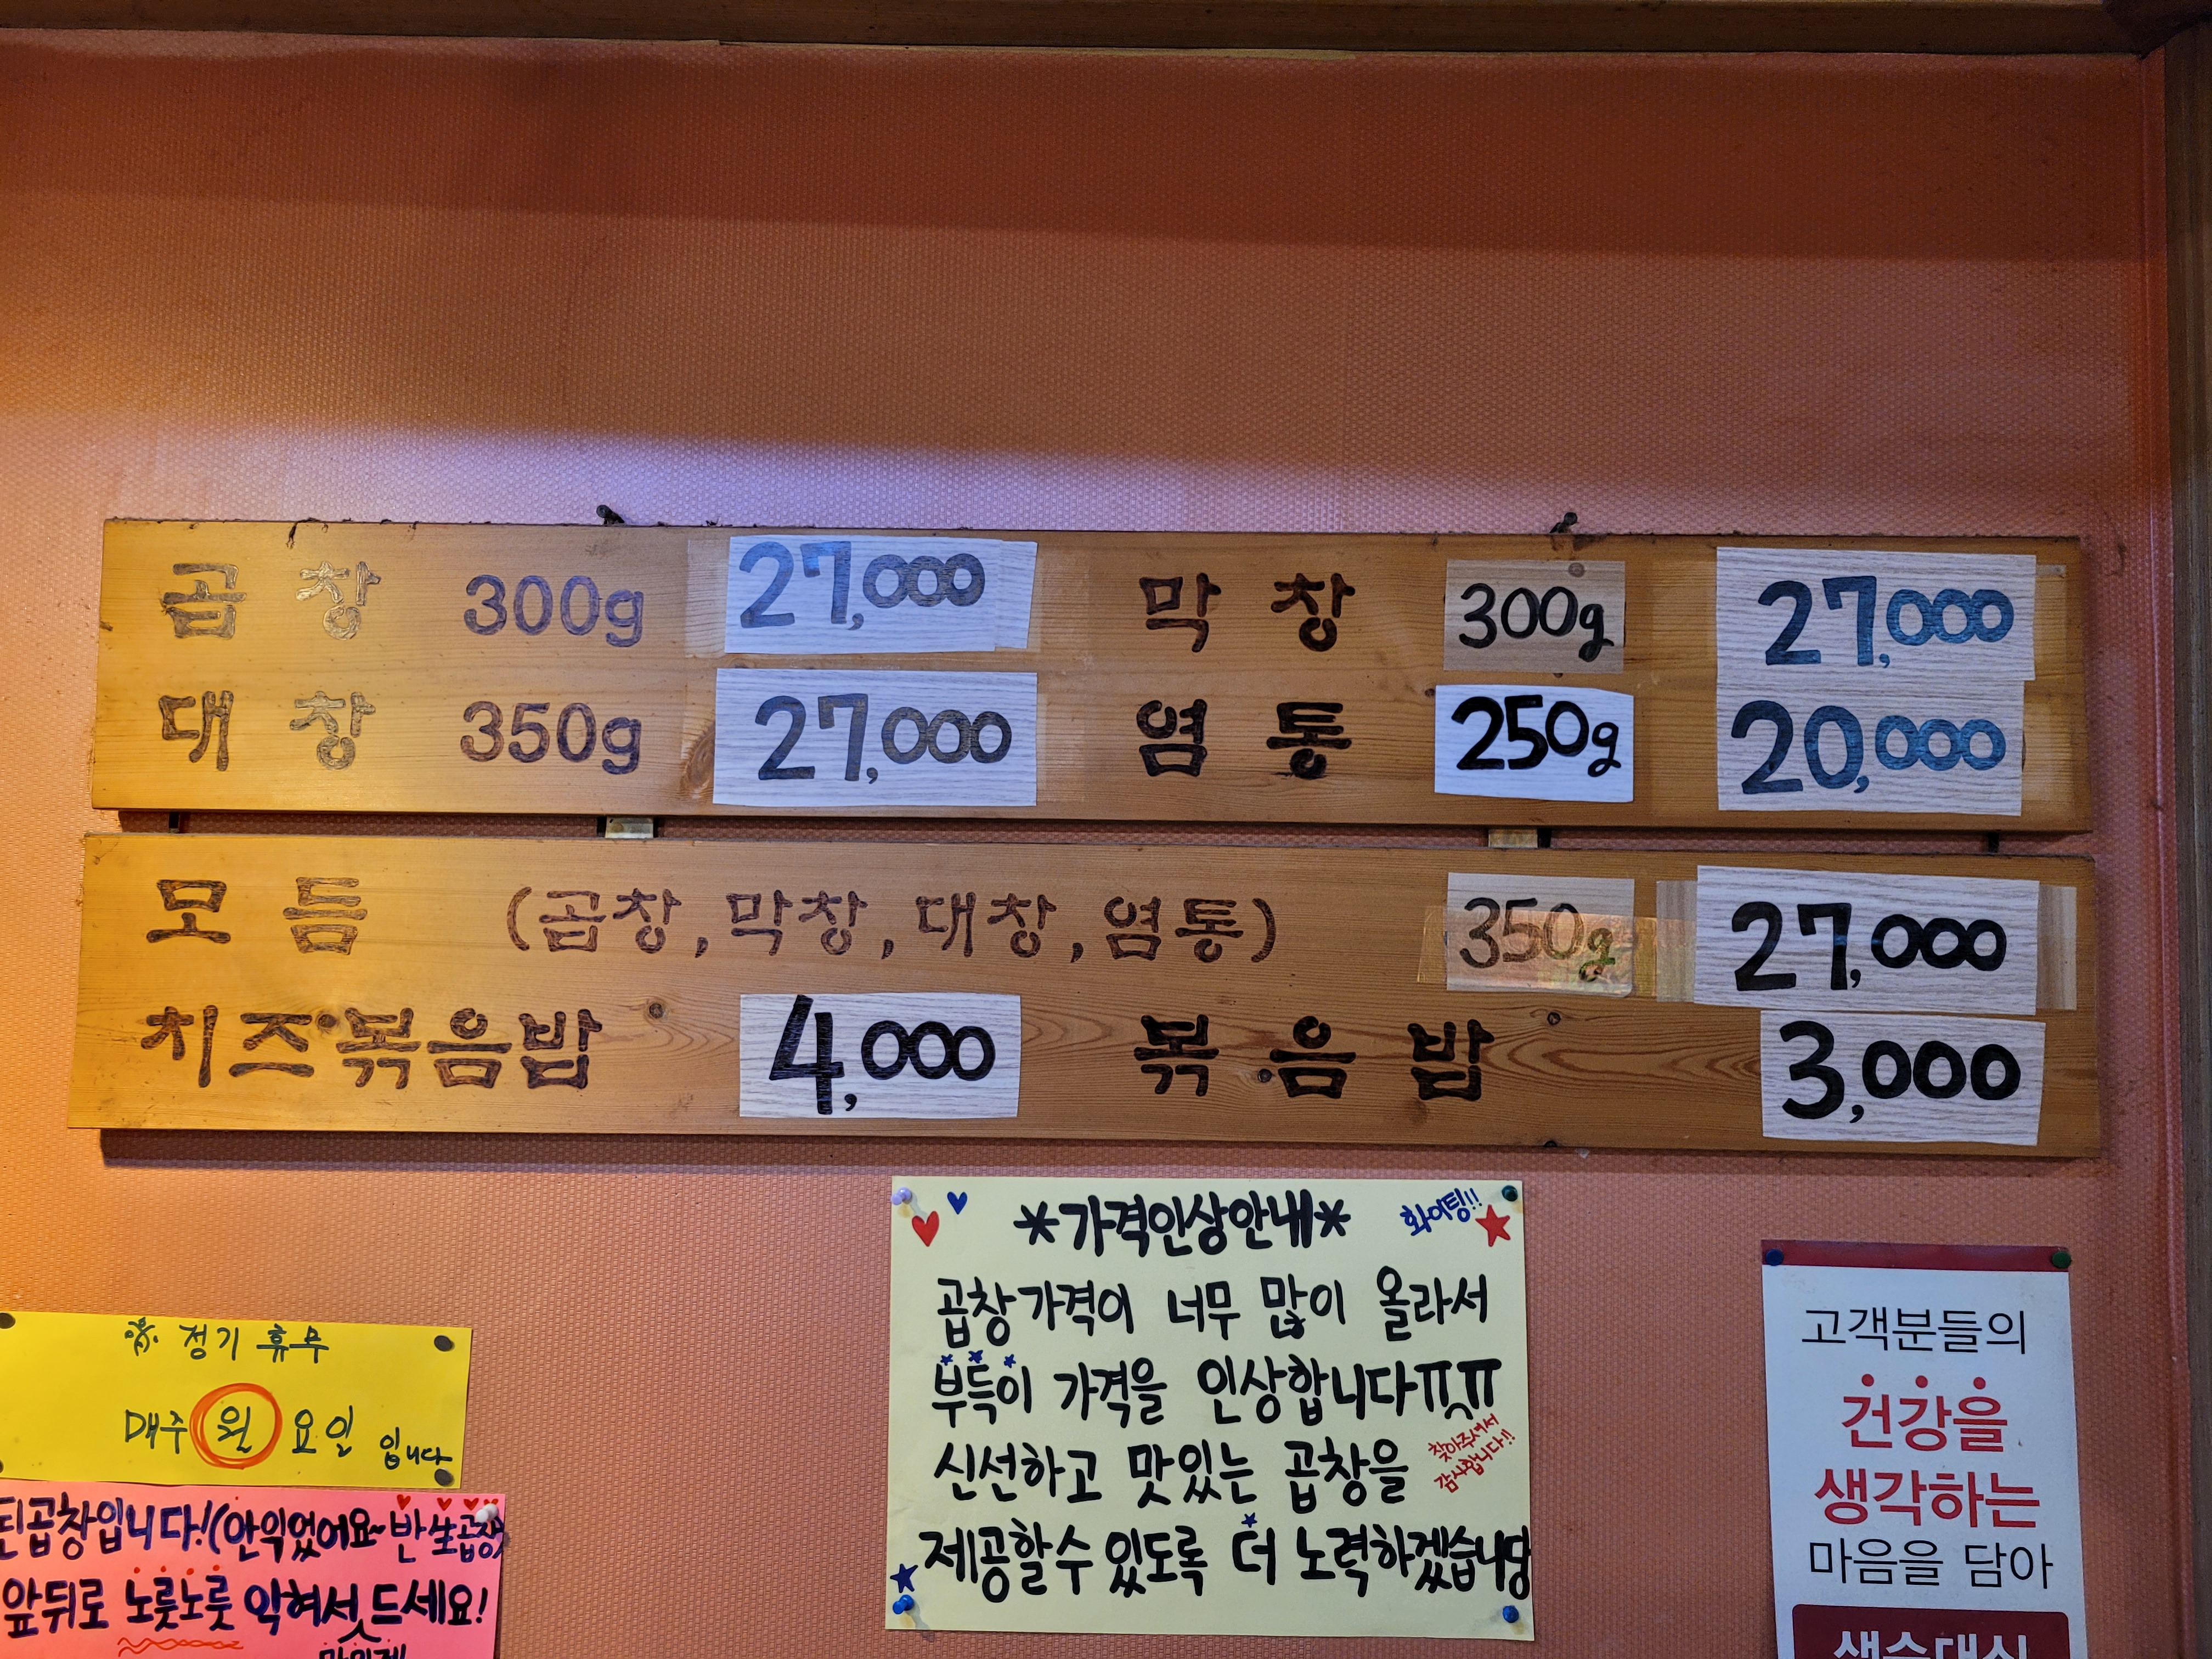 곱창 300g 27,000 막창 300g 27,000
대창 350g 27,000 염통 250g 20,000
모듬 (곱창,막창,대창,염통) 350g 27,000
치즈볶음밥 4,000 볶음밥 3,000
*가격인상안내*
화이팅!!
곱창가격이 너무 많이 올라서
부득이 가격을 인상합니다ㅠㅠ
신선하고 맛있는 곱창을
찾아주셔서
감사합니다!!
제공할수 있도록 더 노력하겠습니당
정기 휴무
매주 월요일 입니다
곱창입니다!(안익었어요~반生곱창
앞뒤로 노릇노릇 익혀서 드세요!
고객분들의
건강을
생각하는
마음을 담아